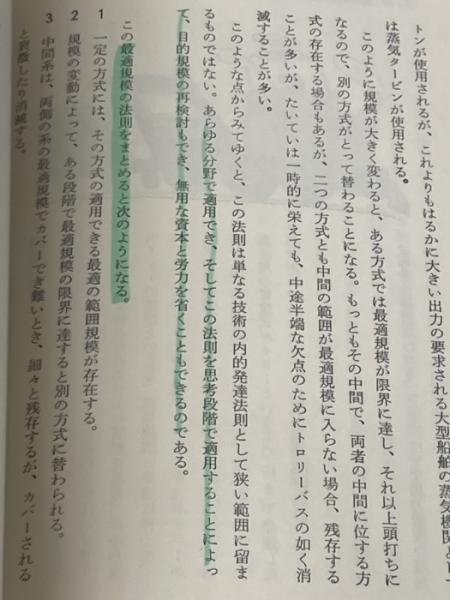 トンが使用されるが、これよりもはるかに大きい出力の要求される大型船舶の蒸気機関として
は蒸気タービンが使用される。
このように規模が大きく変わると、ある方式では最適規模が限界に達し、それ以上頭打ちに
なるので、別の方式がとって替わることになる。もっともその中間で、両者の中間に位する方
式の存在する場合もあるが、二つの方式とも中間の範囲が最適規模に入らない場合、残存する
ことが多いが、たいていは一時的に栄えても、中途半端な欠点のためにトロリーバスの如く消
滅することが多い。
このような点からみてゆくと、この法則は単なる技術の内的発達法則として狭い範囲に留ま
るものではない。あらゆる分野で適用でき、そしてこの法則を思考段階で適用することによっ
て、目的規模の再検討もでき、無用な資本と労力を省くこともできるのである。
この最適規模の法則をまとめると次のようになる。
1 一定の方式には、その方式の適用できる最適の範囲規模が存在する。
2 規模の変動によって、ある段階で最適規模の限界に達すると別の方式に替わられる。
3 中間系は、両側の系の最適規模でカバーでき難いとき、細々と残存するが、カバーされる
と衰微したり消滅する。